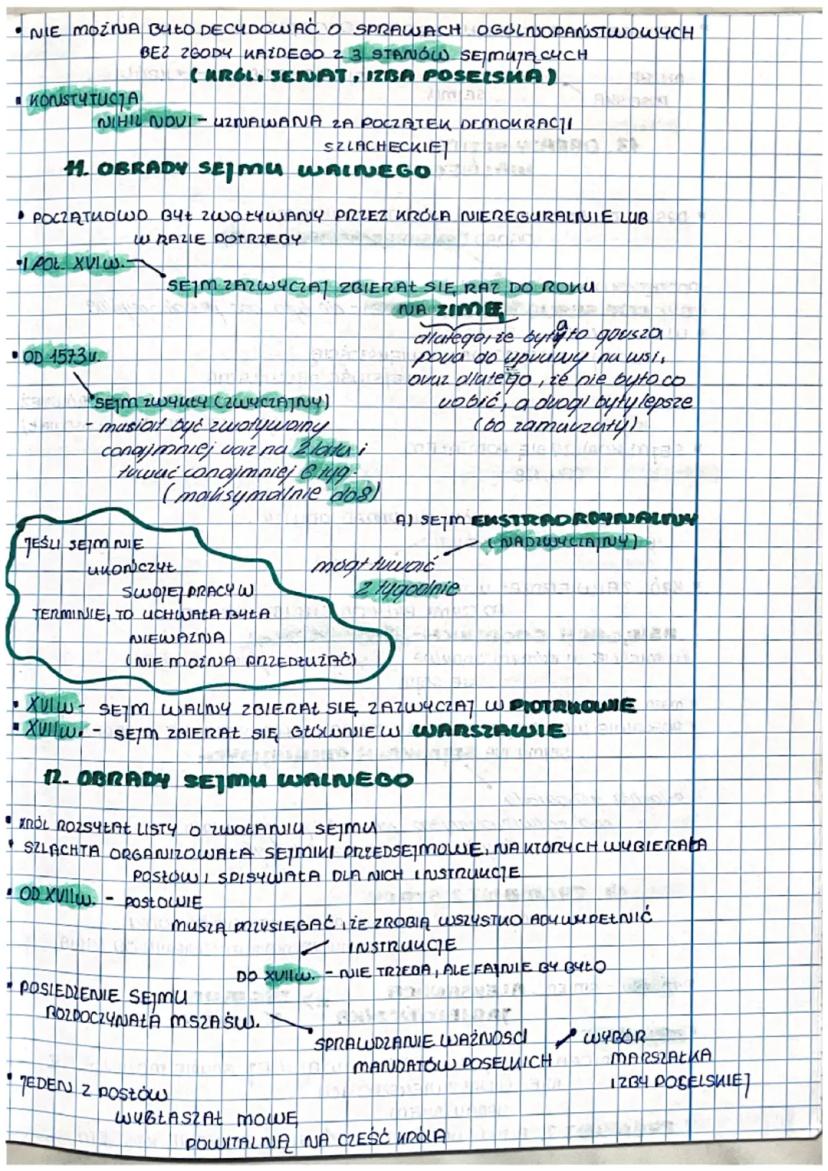 • NIE MOŻNA BYŁO DECYDOWAĆ O SPRAWACH OGÓLNOPAŃSTWOWYCH
BEZ ZGODY KAŻDEGO Z 3 STANÓW SEJMUJĄCYCH
(KRÓL, SENAT, IZBA POSELSKA)
• KONSTYTUCJA
NIHIL NOVI - UZNAWANA ZA POCZĄTEK DEMOKRACJI
SZLACHECKIEJ
11. OBRADY SEJMU WALNEGO
• POCZĄTKOWO BYŁ ZWOŁYWANY PRZEZ KRÓLA NIEREGURALNIE LUB
W RAZIE POTRZEBY
• I POŁ. XVI w.
SEJM ZAZWYCZAJ ZBIERAŁ SIĘ RAZ DO ROKU
NA ZIMĘ
dlatego, że była to gorsza
pora do uprawy na wsi,
oraz dlatego, że nie było co
robić, a drogi były lepsze
(bo zamarzały)
• OD 1573 r.
SEJM ZWYKŁY (ZWYCZAJNY)
- musiał być zwoływany
conajmniej raz na 2 lata i
trwać conajmniej 6 tyg.
(maksymalnie do 8)
A) SEJM EKSTRAORDYNALNY
(NADZWYCZAJNY)
mógł trwać
2 tygodnie
JEŚLI SEJM NIE
UKOŃCZYŁ
SWOJEJ PRACY W
TERMINIE, TO UCHWAŁA BYŁA
NIEWAŻNA
(NIE MOŻNA PRZEDŁUŻAĆ)
• XVI w - SEJM WALNY ZBIERAŁ SIĘ ZAZWYCZAJ W PIOTRKOWIE
• XVII w. - SEJM ZBIERAŁ SIĘ GŁÓWNIE W WARSZAWIE
12. OBRADY SEJMU WALNEGO
• KRÓL ROZSYŁAŁ LISTY O ZWOŁANIU SEJMU
• SZLACHTA ORGANIZOWAŁA SEJMIKI PRZEDSEJMOWE, NA KTÓRYCH WYBIERAŁA
POSŁÓW I SPISYWAŁA DLA NICH INSTRUKCJE
• OD XVII w. - POSŁOWIE
MUSZĄ PRZYSIĘGAĆ, ŻE ZROBIĄ WSZYSTKO ABY WYPEŁNIĆ
INSTRUKCJE
DO XVII w. - NIE TRZEBA, ALE FAJNIE BY BYŁO
• POSIEDZENIE SEJMU
ROZPOCZYNAŁA MSZA ŚW.
SPRAWDZANIE WAŻNOŚCI
MANDATÓW POSELKICH
WYBÓR
MARSZAŁKA
IZBY POSELSKIEJ
• JEDEN Z POSŁÓW
WYGŁASZAŁ MOWĘ
POWITALNĄ NA CZEŚĆ KRÓLA